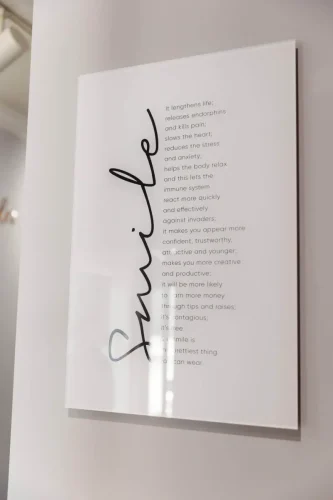 Smile
It lengthens life;
releases endorphins
and kills pain;
slows the heart;
reduces the stress
and anxiety;
helps the body relax
and this lets the
immune system
react more quickly
and effectively
against invaders;
it makes you appear more
confident, trustworthy,
attractive and younger;
makes you more creative
and productive;
it will be more likely
to earn more money
through tips and raises;
it's contagious;
it's free.
smile is
prettiest thing
can wear.